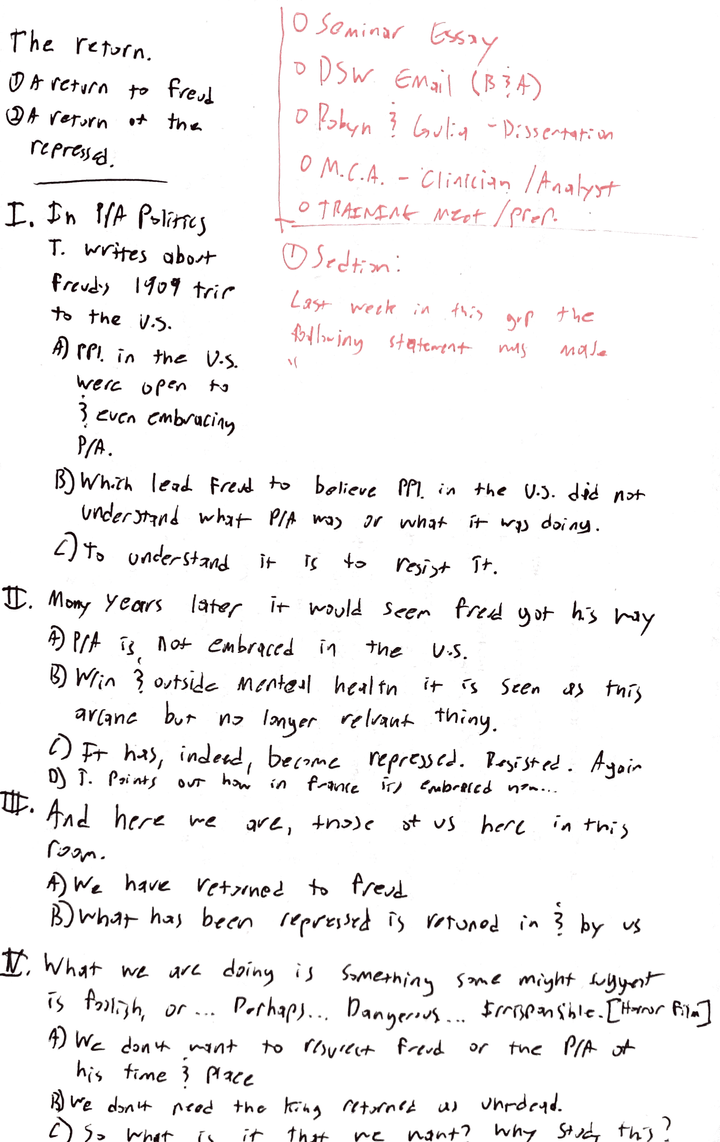 The return.
① A return to Freud
② A return of the
repressed.
O Seminar Essay
O DSW Email (B & A)
O Robyn & Julia - Dissertation
O M.C.A. - Clinician / Analyst
O TRAINING meet / prep.
I. In P/A Politics
T. writes about
Freud's 1909 trip
to the U.S.
A) PPl. in the U.S.
were open to
& even embracing
P/A.
① Section:
Last week in this grp the
following statement was made
"
B) Which lead Freud to believe PPl. in the U.S. did not
understand what P/A was or what it was doing.
C) to understand it is to resist it.
II. Many years later it would seem freud got his way
A) P/A is not embraced in the U.S.
B) W/in & outside mental health it is seen as this
arcane but no longer relvant thing.
C) It has, indeed, become repressed. Resisted. Again
D) T. Points out how in france it's embraced now...
III. And here we are, those of us here in this
room.
A) We have returned to freud
B) What has been repressed is retuned in & by us
IV. What we are doing is something some might suggest
is foolish, or... Perhaps... Dangerous... Irresponsible. [Horror Film]
A) We don't want to resurect Freud or the P/A of
his time & place
B) We don't need the King returned as undead.
C) So what is it that we want? Why study this?